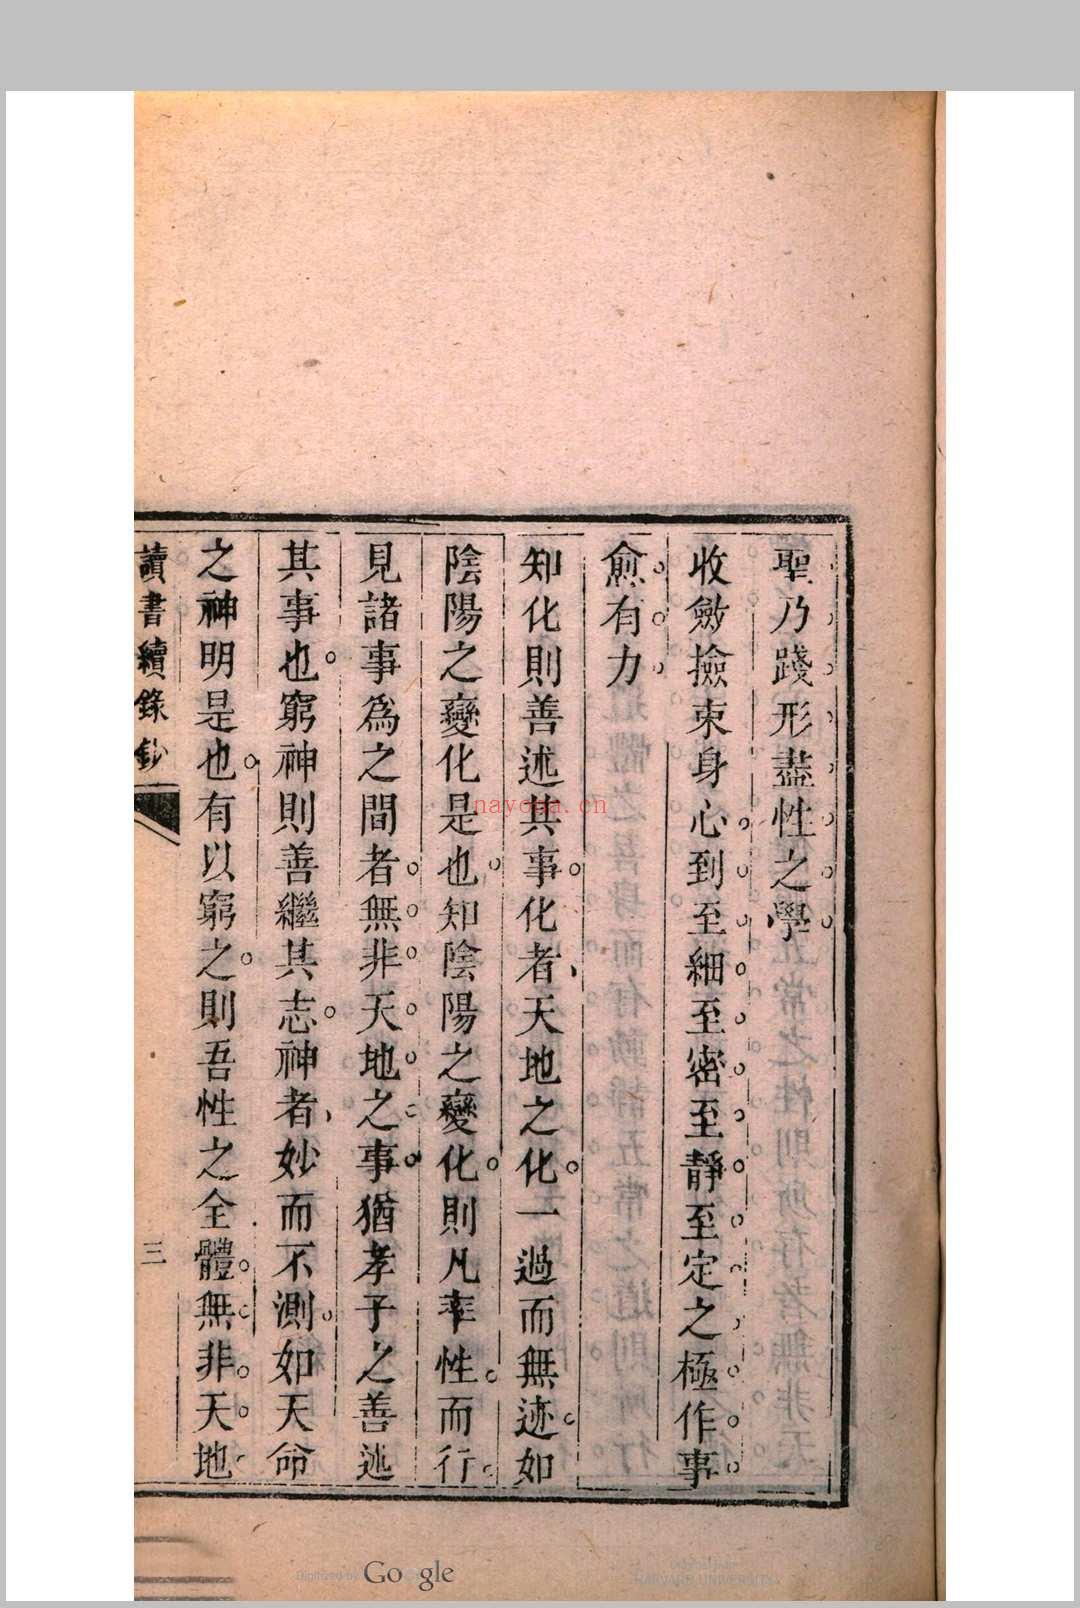 聖乃踐形盡性之學
收斂撿束身心到至細至密至靜至定之極作事
愈有力
知化則善述其事化者天地之化一過而無迹如
陰陽之變化是也知陰陽之變化則凡率性而行
見諸事爲之間者無非天地之事猶孝子之善述
其事也窮神則善繼其志神者妙而不測如天命
之神明是也有以窮之則吾性之全體無非天地
讀書續錄鈔
三
nayona.cn
Digitized by Google
Original from
HARVARD UNIVERSITY